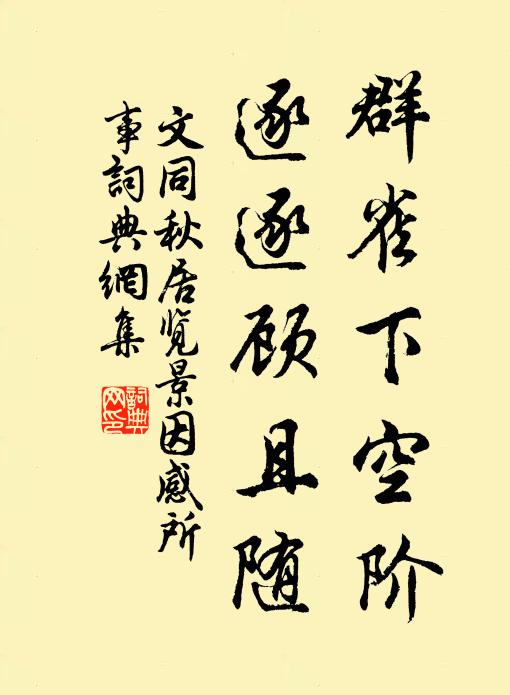 群雀下空阶
逐逐顾且随
文同秋居览景因感所
事詞典網集
詞典
网印